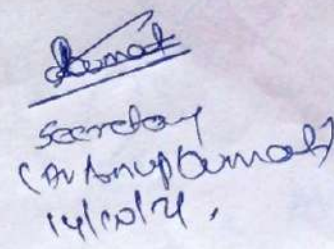 Kumar
Secretary
(Dr Anup Kumar)
14/10/21,